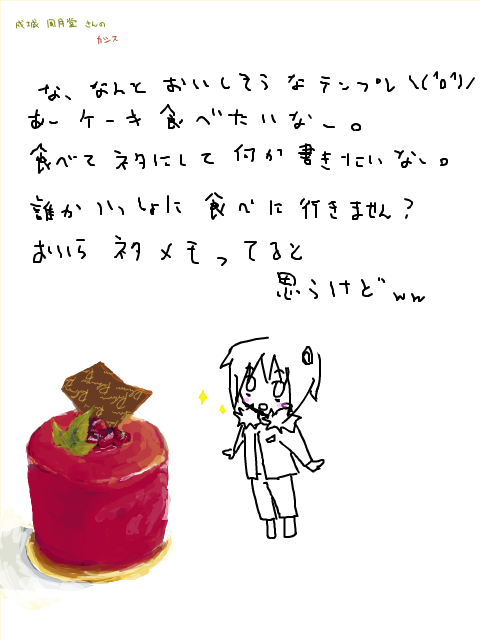 成城 風月堂 さんの
カシス
な、なんと おいしそうな テンプレ \(ﾟoﾟ)/
あー ケーキ 食べたいなー。
食べて ネタにして 何か 書きたいなー。
誰か いっしょに 食べに 行きません?
おいら ネタメモってると
思うけど ww